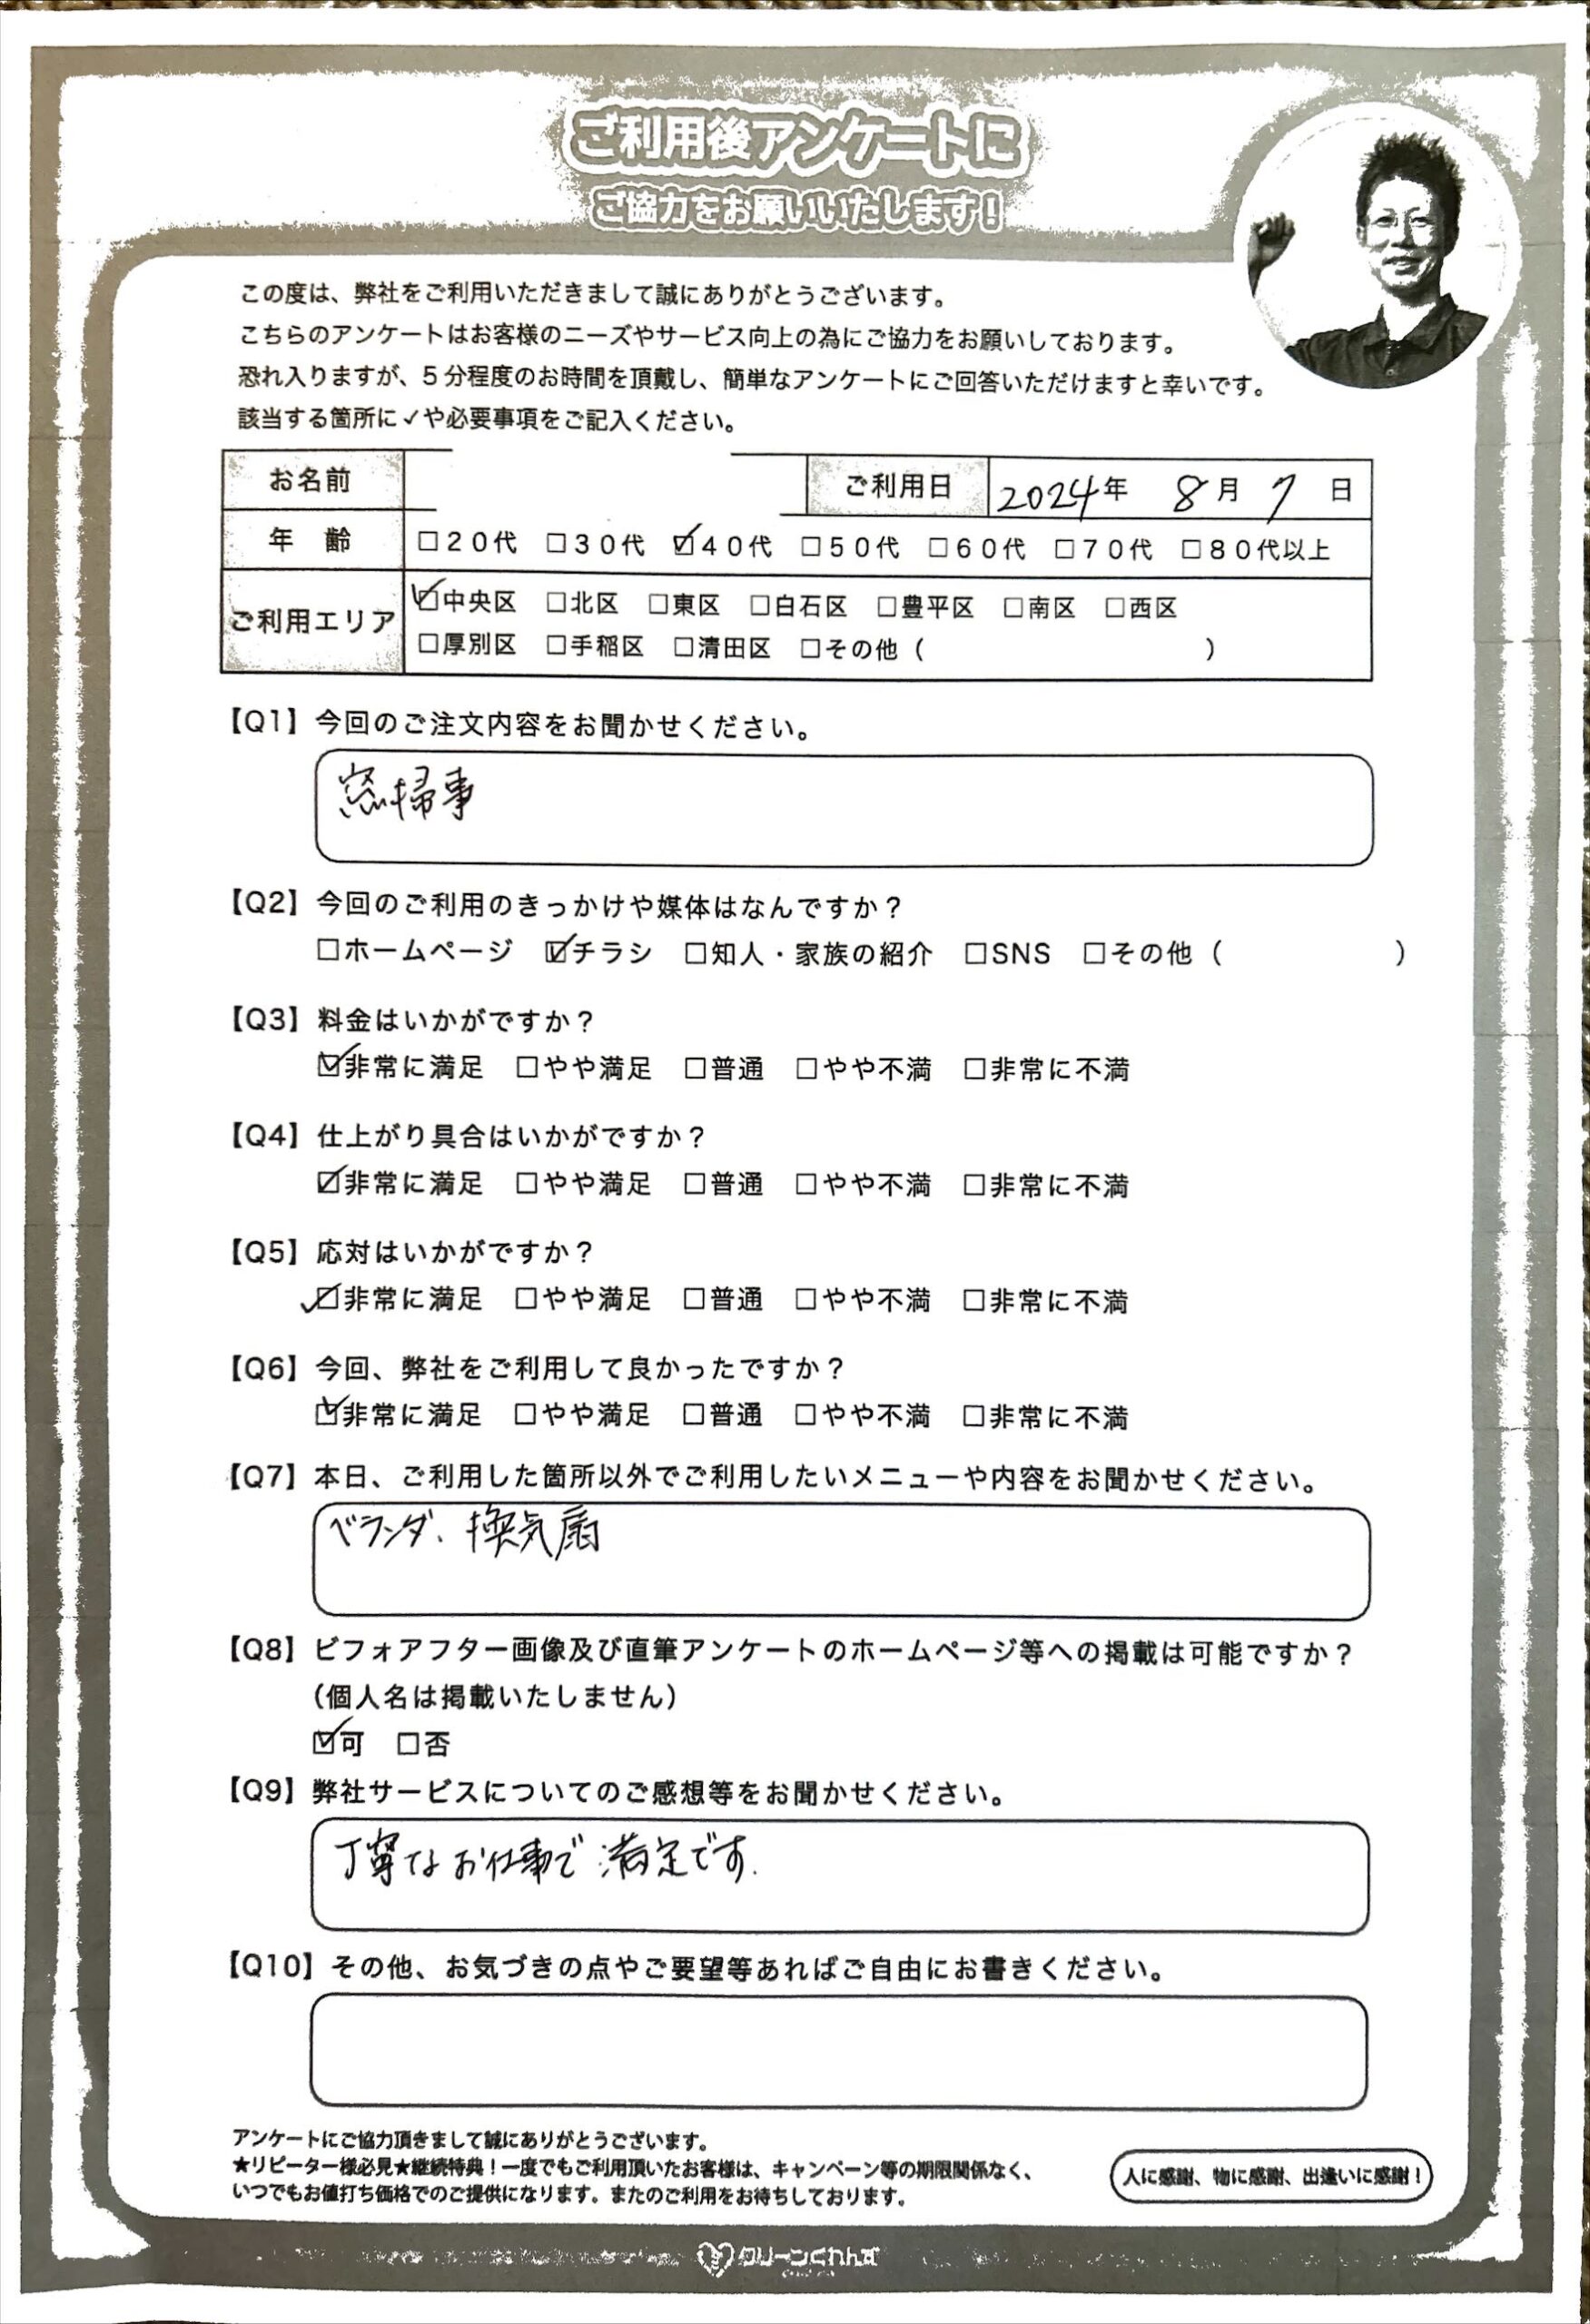 ご利用後アンケートに
ご協力をお願いいたします！
この度は、弊社をご利用いただきまして誠にありがとうございます。
こちらのアンケートはお客様のニーズやサービス向上の為にご協力をお願いしております。
恐れ入りますが、5分程度のお時間を頂戴し、簡単なアンケートにご回答いただけますと幸いです。
該当する箇所に✓や必要事項をご記入ください。
お名前 ご利用日 2024年 8月 7日
年 齢 □20代 □30代 ☑40代 □50代 □60代 □70代 □80代以上
ご利用エリア ☑中央区 □北区 □東区 □白石区 □豊平区 □南区 □西区
□厚別区 □手稲区 □清田区 □その他（ ）
【Q1】今回のご注文内容をお聞かせください。
窓掃事
【Q2】今回のご利用のきっかけや媒体はなんですか？
□ホームページ ☑チラシ □知人・家族の紹介 □SNS □その他（ ）
【Q3】料金はいかがですか？
☑非常に満足 □やや満足 □普通 □やや不満 □非常に不満
【Q4】仕上がり具合はいかがですか？
☑非常に満足 □やや満足 □普通 □やや不満 □非常に不満
【Q5】応対はいかがですか？
☑非常に満足 □やや満足 □普通 □やや不満 □非常に不満
【Q6】今回、弊社をご利用して良かったですか？
☑非常に満足 □やや満足 □普通 □やや不満 □非常に不満
【Q7】本日、ご利用した箇所以外でご利用したいメニューや内容をお聞かせください。
ベランダ、換気扇
【Q8】ビフォアフター画像及び直筆アンケートのホームページ等への掲載は可能ですか？
（個人名は掲載いたしません）
☑可 □否
【Q9】弊社サービスについてのご感想等をお聞かせください。
丁寧なお仕事で満足です.
【Q10】その他、お気づきの点やご要望等あればご自由にお書きください。
アンケートにご協力頂きまして誠にありがとうございます。
★リピーター様必見★継続特典！一度でもご利用頂いたお客様は、キャンペーン等の期限関係なく、
いつでもお値打ち価格でのご提供になります。またのご利用をお待ちしております。
人に感謝、物に感謝、出逢いに感謝！
クリーンくれんず